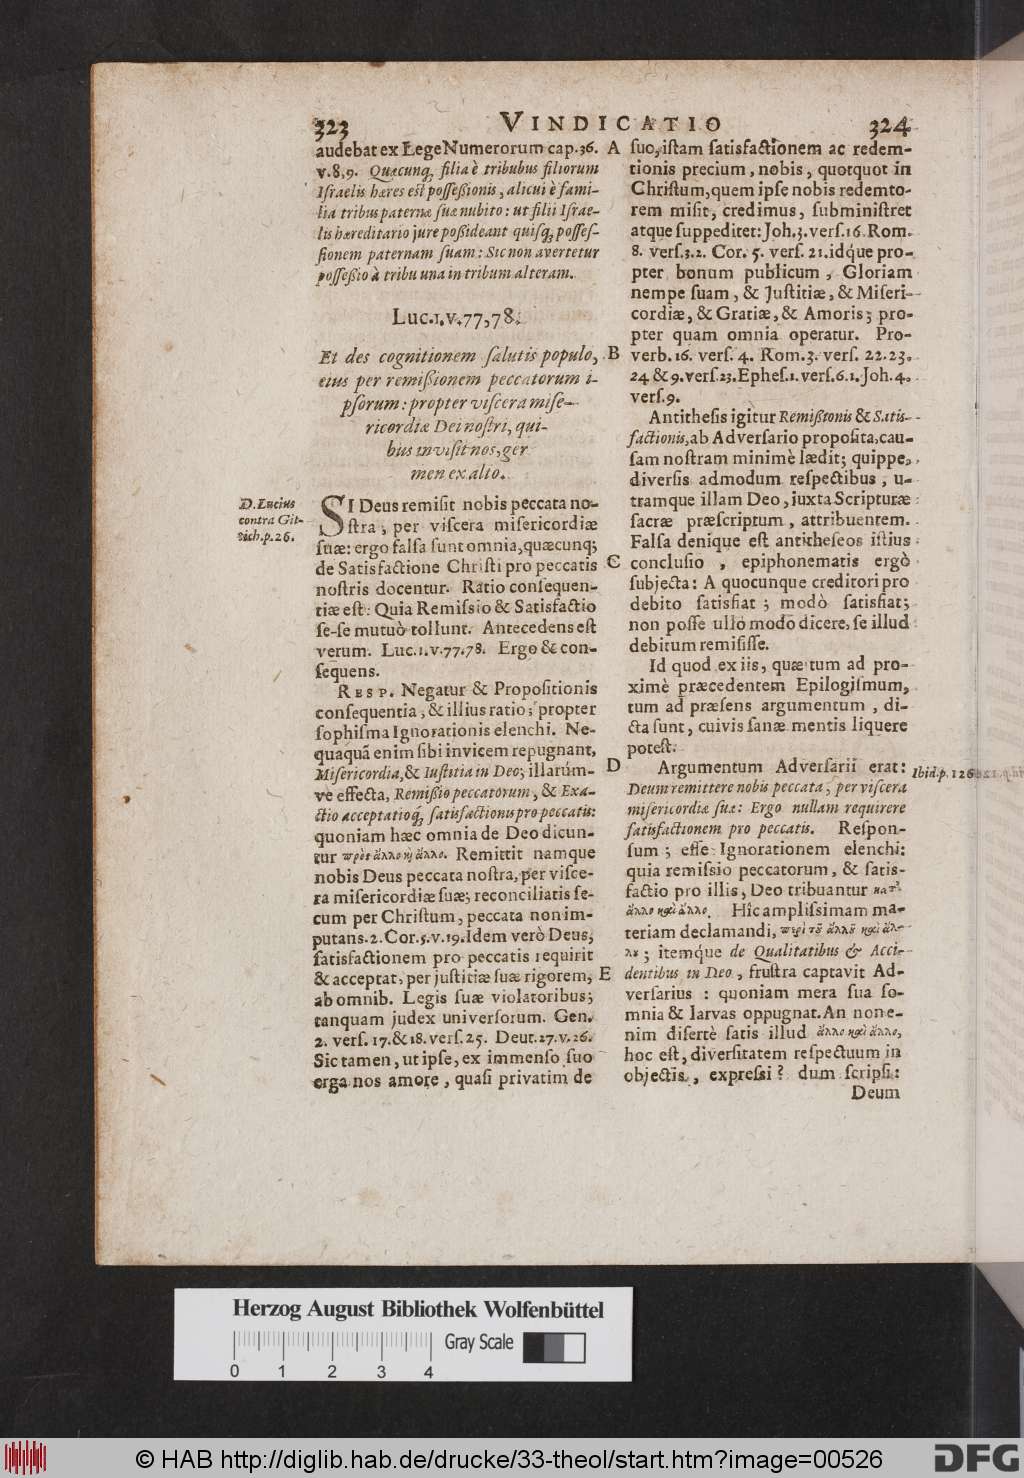 323 VINDICATIO 324
audebat ex Lege Numerorum cap.36.
v.8,9. Quæcunq; filia è tribubus filiorum
Iſraelis hæres eſt poſſeßionis, alicui è fami-
lia tribus paternæ ſuæ nubito: ut filii Iſrae-
lis hæreditario jure poßideant quiſq; poſſeſ-
ſionem paternam ſuam: Sic non avertetur
poſſeßio à tribu una in tribum alteram.
Luc.1.v.77,78.
Et des cognitionem ſalutis populo,
eius per remißionem peccatorum i-
pſorum: propter viſcera miſe-
ricordiæ Dei noſtri, qui-
bus inviſit nos, ger
men ex alto.
D. Lucius
contra Git-
zich.p.26.
SI Deus remiſit nobis peccata no-
ſtra, per viſcera miſericordiæ
ſuæ: ergo falſa ſunt omnia, quæcunq;
de Satisfactione Chriſti pro peccatis
noſtris docentur. Ratio conſequen-
tiæ eſt: Quia Remiſsio & Satisfactio
ſe-ſe mutuò tollunt. Antecedens eſt
verum. Luc.1.v.77.78. Ergo & con-
ſequens.
RESP. Negatur & Propoſitionis
conſequentia, & illius ratio; propter
ſophiſma Ignorationis elenchi. Ne-
quaquã enim ſibi invicem repugnant,
Miſericordia, & Iuſtitia in Deo; illarúm-
ve effecta, Remißio peccatorum, & Exa-
ctio acceptatioq; ſatisfactionis pro peccatis:
quoniam hæc omnia de Deo dicun-
tur πρὸς ἄλλο κỳ ἄλλο. Remittit namque
nobis Deus peccata noſtra, per viſce-
ra miſericordiæ ſuæ; reconciliatis ſe-
cum per Chriſtum, peccata non im-
putans. 2. Cor.5.v.19. Idem verò Deus,
ſatisfactionem pro peccatis requirit
& acceptat, per juſtitiæ ſuæ rigorem,
ab omnib. Legis ſuæ violatoribus;
tanquam judex univerſorum. Gen.
2. verſ. 17.&18. verſ. 25. Deut.27.v.26.
Sic tamen, ut ipſe, ex immenſo ſuo
erga nos amore, quaſi privatim de
A
B
C
D
E
ſuo, iſtam ſatisfactionem ac redem-
tionis precium, nobis, quotquot in
Chriſtum, quem ipſe nobis redemto-
rem miſit, credimus, ſubminiſtret
atque ſuppeditet: Joh.3.verſ.16. Rom.
8. verſ.3.2. Cor. 5. verſ. 21. idq́ue pro-
pter bonum publicum, Gloriam
nempe ſuam, & Juſtitiæ, & Miſeri-
cordiæ, & Gratiæ, & Amoris; pro-
pter quam omnia operatur. Pro-
verb. 16. verſ. 4. Rom.3. verſ. 22.23.
24 & 9.verſ.23.Epheſ.1.verſ.6.1.Joh.4.
verſ.9.
Antitheſis igitur Remißionis & Satis-
factionis, ab Adverſario propoſita, cau-
ſam noſtram minimè lædit; quippe,
diverſis admodum reſpectibus, u-
tramque illam Deo, juxta Scripturæ
ſacræ præſcriptum, attribuentem.
Falſa denique eſt antitheſeos iſtius
concluſio, epiphonematis ergò
ſubjecta: A quocunque creditori pro
debito ſatisfiat; modò ſatisfiat;
non poſſe ullo modo dicere, ſe illud
debitum remiſiſſe.
Id quod ex iis, quæ tum ad pro-
ximè præcedentem Epilogiſmum,
tum ad præſens argumentum, di-
cta ſunt, cuivis ſanæ mentis liquere
poteſt.
Argumentum Adverſarii erat:
Deum remittere nobis peccata, per viſcera
miſericordiæ ſuæ: Ergo nullam requirere
ſatisfactionem pro peccatis. Reſpon-
ſum; eſſe Ignorationem elenchi:
quia remiſsio peccatorum, & ſatis-
factio pro illis, Deo tribuantur κατ'
ἄλλο καὶ ἄλλο. Hîc ampliſsimam ma-
teriam declamandi, περὶ τοῦ ἄλλου καὶ ἄλ-
λου; itemq́ue de Qualitatibus & Acci-
dentibus in Deo, fruſtra captavit Ad-
verſarius: quoniam mera ſua ſo-
mnia & larvas oppugnat. An non e-
nim diſertè ſatis illud ἄλλο καὶ ἄλλο,
hoc eſt, diverſitatem reſpectuum in
objectis, expreſsi? dum ſcripſi:
Deum
Ibid.p.126
Herzog August Bibliothek Wolfenbüttel
Gray Scale
0 1 2 3 4
© HAB http://diglib.hab.de/drucke/33-theol/start.htm?image=00526
DFG